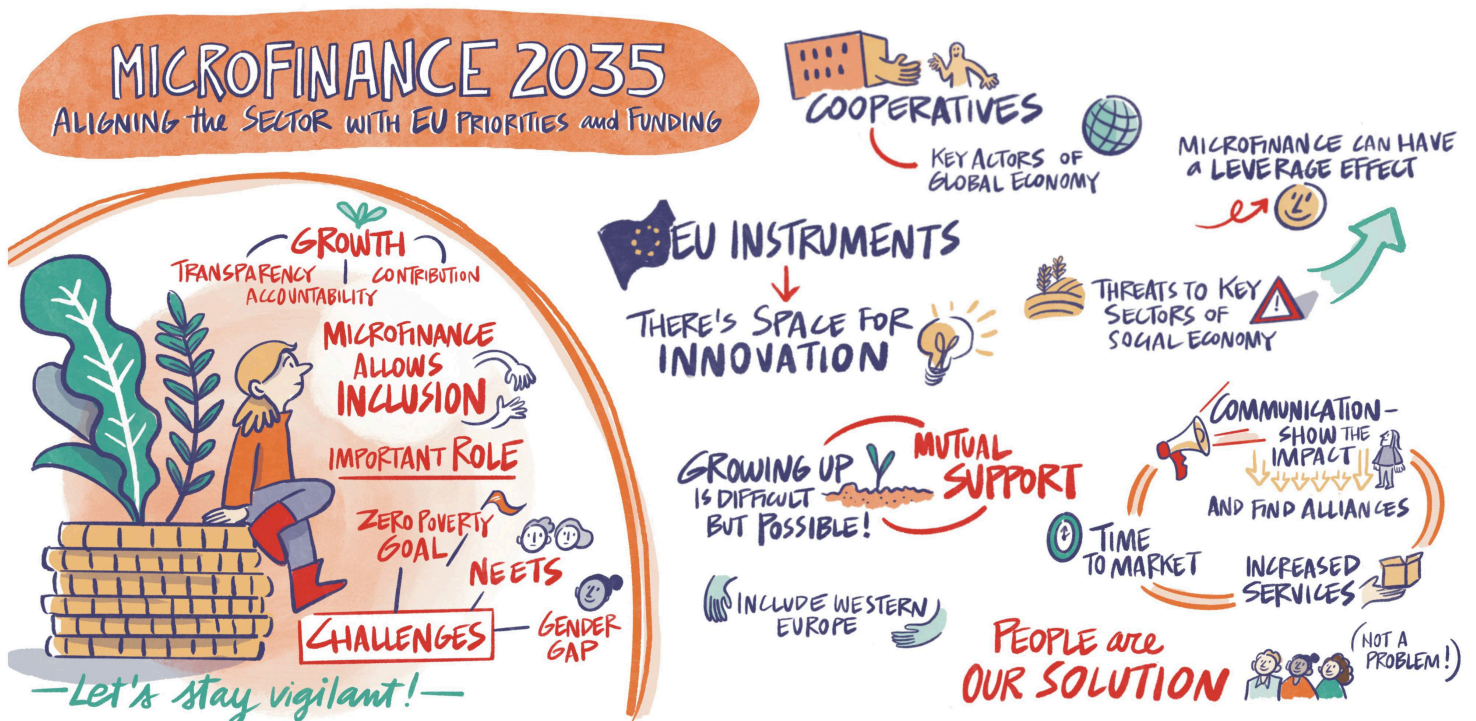 MICROFINANCE 2035
ALIGNING the SECTOR WITH EU PRIORITIES and FUNDING
GROWTH
TRANSPARENCY
ACCOUNTABILITY
CONTRIBUTION
MICROFINANCE
ALLOWS
INCLUSION
IMPORTANT ROLE
ZERO POVERTY
GOAL
NEETS
CHALLENGES
GENDER
GAP
—Let's stay vigilant!—
COOPERATIVES
KEY ACTORS OF
GLOBAL ECONOMY
EU INSTRUMENTS
THERE'S SPACE FOR
INNOVATION
MICROFINANCE CAN HAVE
a LEVERAGE EFFECT
THREATS TO KEY
SECTORS OF
SOCIAL ECONOMY
GROWING UP
IS DIFFICULT
BUT POSSIBLE!
MUTUAL
SUPPORT
INCLUDE WESTERN
EUROPE
COMMUNICATION –
SHOW THE
IMPACT
AND FIND ALLIANCES
TIME
TO MARKET
INCREASED
SERVICES
PEOPLE are
OUR SOLUTION
(NOT A
PROBLEM!)